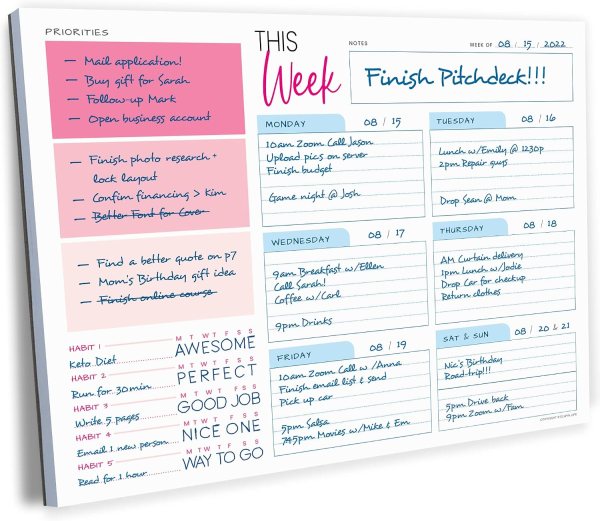 PRIORITIES
— Mail application!
— Buy gift for Sarah
— Follow-up Mark
— Open business account
— Finish photo research +
lock layout
— Confirm financing > Kim
— Better Font for Cover
— Find a better quote on p7
— Mom's Birthday gift idea
— Finish online course
HABIT 1 M T W T F S S
Keto Diet AWESOME
HABIT 2 M T W T F S S
Run for 30 min PERFECT
HABIT 3 M T W T F S S
Write 5 pages GOOD JOB
HABIT 4 M T W T F S S
Email 1 new person NICE ONE
HABIT 5 M T W T F S S
Read for 1 hour WAY TO GO
THIS
Week
NOTES
WEEK OF 08 / 15 / 2022
Finish Pitchdeck!!!
MONDAY 08 / 15
10am Zoom Call Jason
Upload pics on server
Finish budget
Game night @ Josh
TUESDAY 08 / 16
Lunch w/Emily @ 1230p
2pm Repair guys
Drop Sean @ Mom
WEDNESDAY 08 / 17
9am Breakfast w/Ellen
Call Sarah!
Coffee w/Carl
9pm Drinks
THURSDAY 08 / 18
AM Curtain delivery
1pm Lunch w/Jodie
Drop Car for checkup
Return clothes
FRIDAY 08 / 19
10am Zoom Call w/Anna
Finish email list & send
Pick up car
5pm Salsa
745pm Movies w/Mike & Em
SAT & SUN 08 / 20 & 21
Nic's Birthday
Road-trip!!!
5pm Drive back
9pm Zoom w/Fam